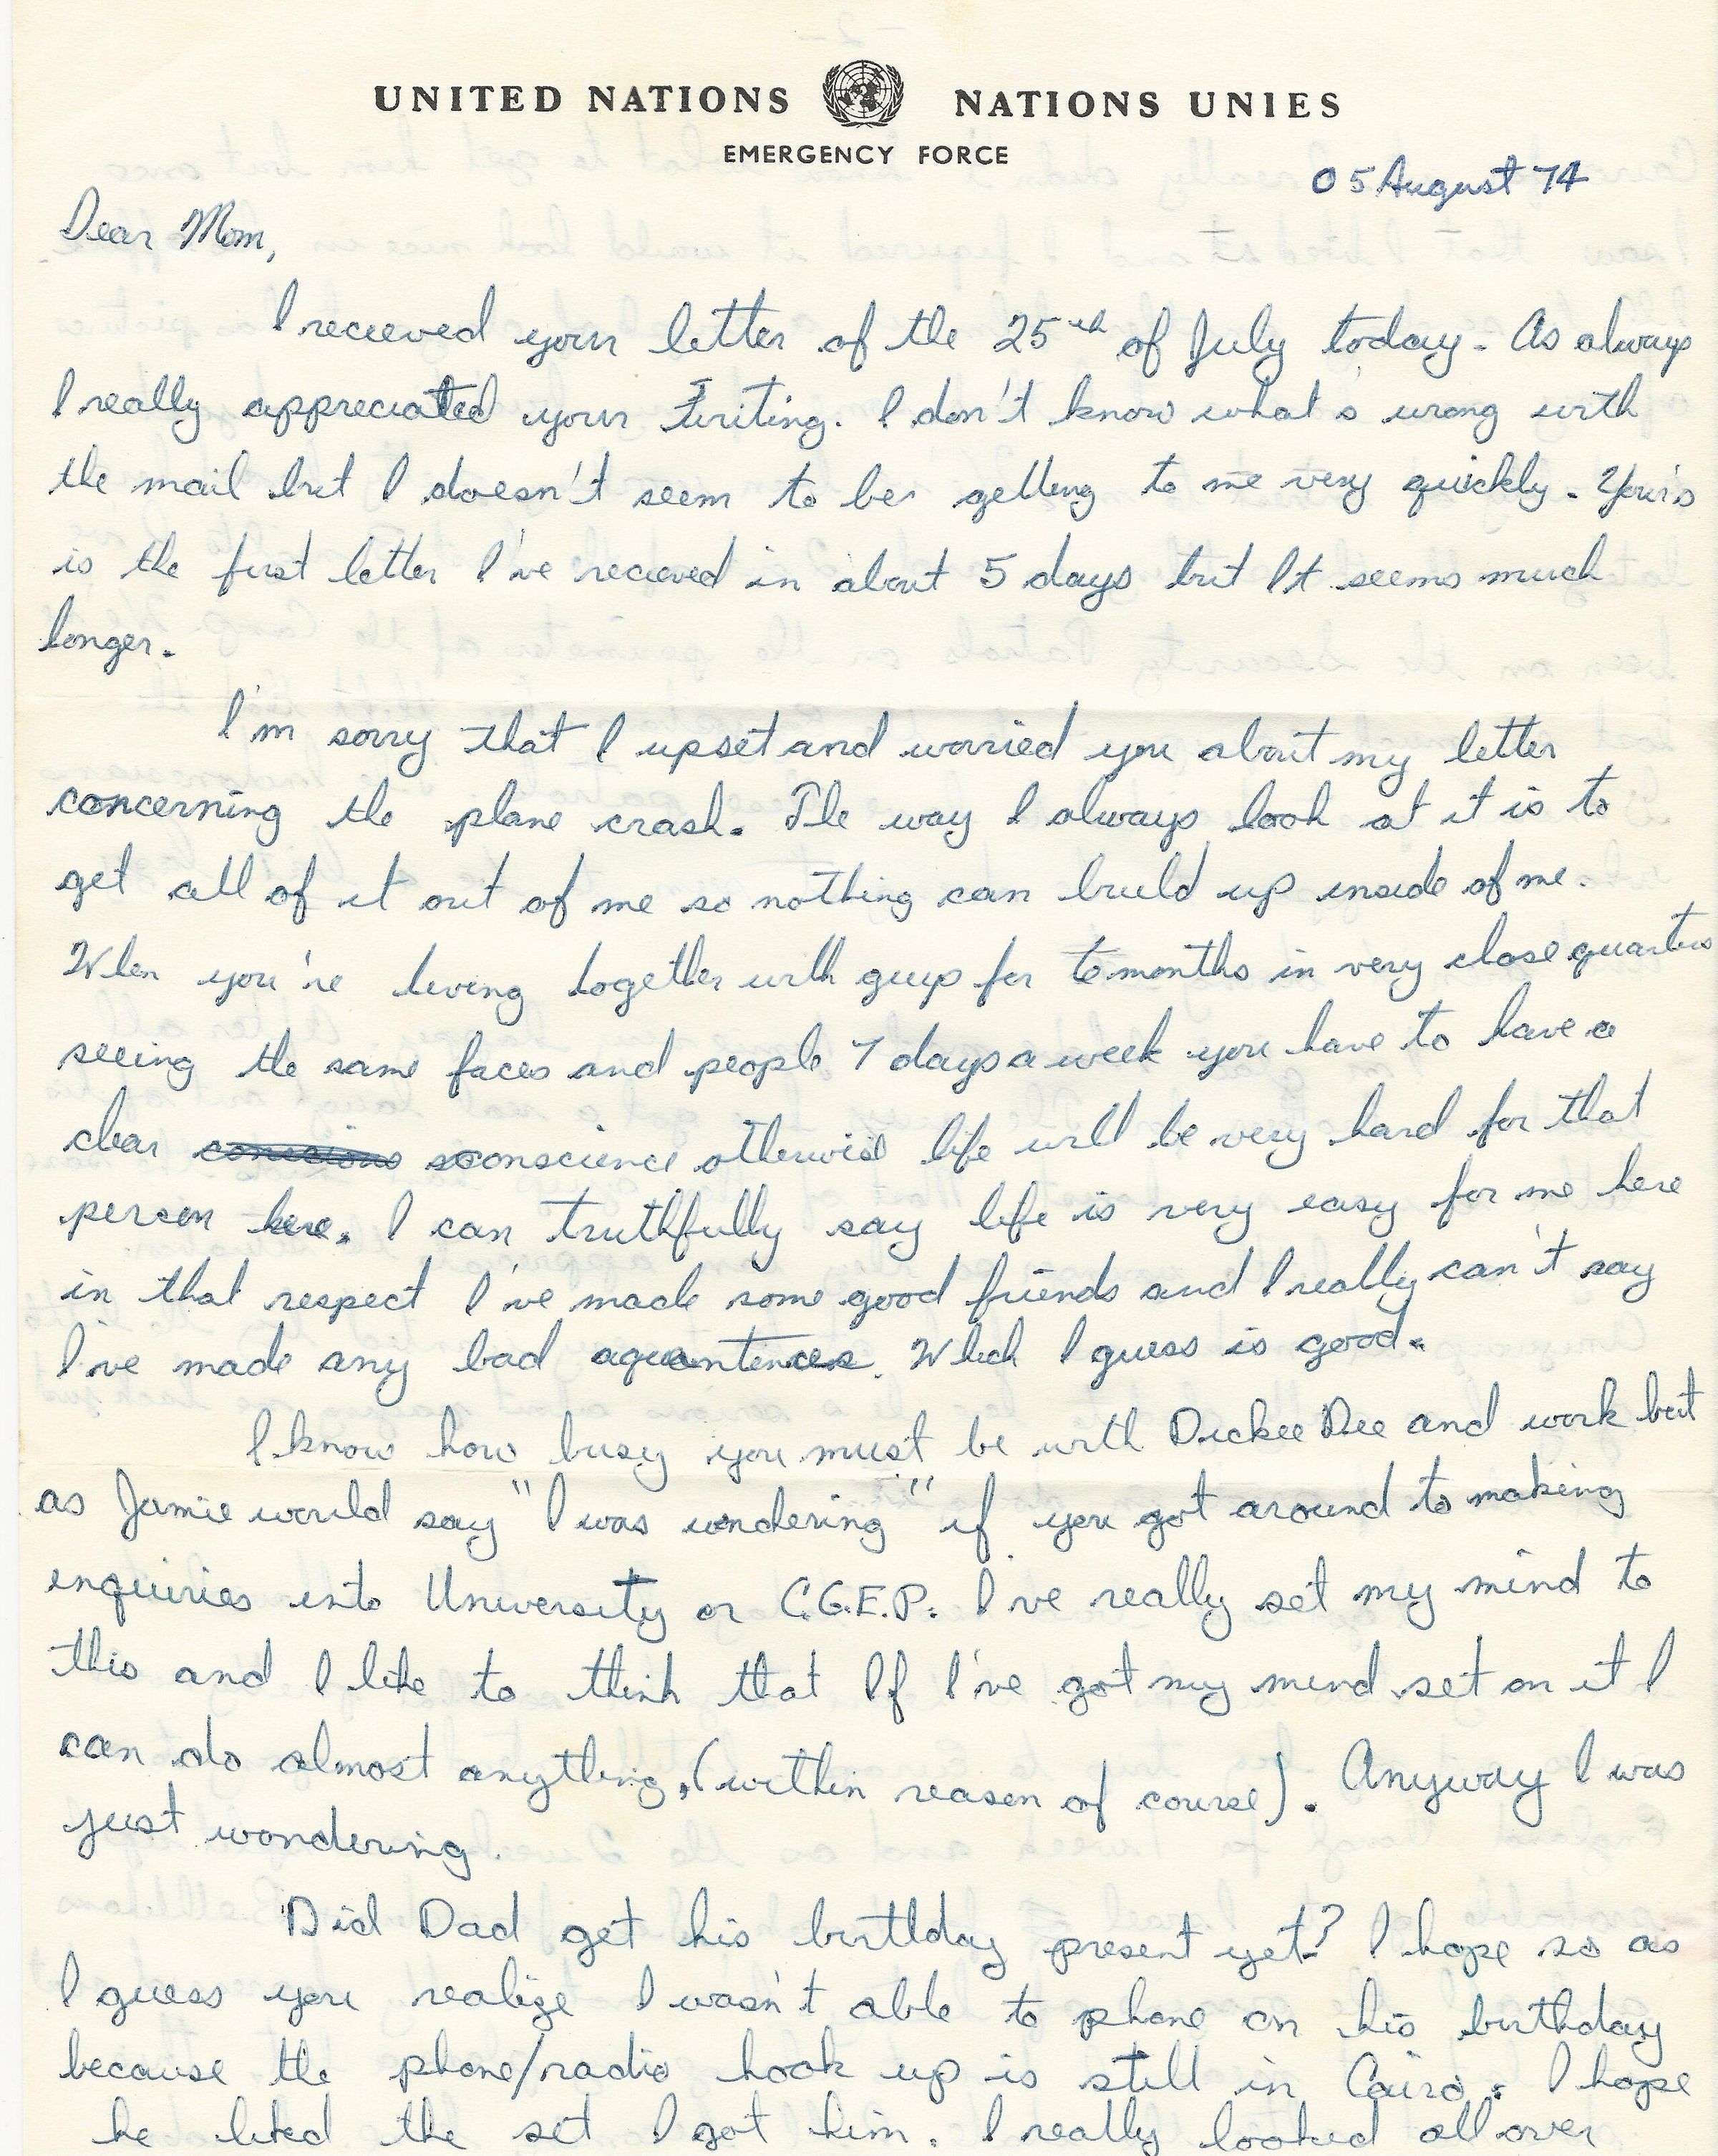 UNITED NATIONS NATIONS UNIES
EMERGENCY FORCE
05 August 74
Dear Mom,
I recieved your letter of the 25th of July today. As always
I really appreciated your writing. I don't know what's wrong with
the mail but I doesn't seem to be getting to me very quickly. Your's
is the first letter I've recieved in about 5 days but It seems much
longer.
I'm sorry that I upset and worried you about my letter
concerning the plane crash. The way I always look at it is to
get all of it out of me so nothing can build up inside of me.
When you're living together with guys for 6 months in very close quarters
seeing the same faces and people 7 days a week you have to have a
clear conscious conscience otherwise life will be very hard for that
person here. I can truthfully say life is very easy for me here
in that respect I've made some good friends and I really can't say
I've made any bad aquantences. Which I guess is good.
I know how busy you must be with Dickee Dee and work but
as Jamie would say "I was wondering" if you got around to making
enquiries into University or C.G.E.P. I've really set my mind to
this and I like to think that If I've got my mind set on it I
can do almost anything, (within reason of course). Anyway I was
just wondering.
Did Dad get his birthday present yet? I hope so as
I guess you realize I wasn't able to phone on his birthday
because the phone/radio hook up is still in Cairo. I hope
he liked the set I got him. I really looked all over